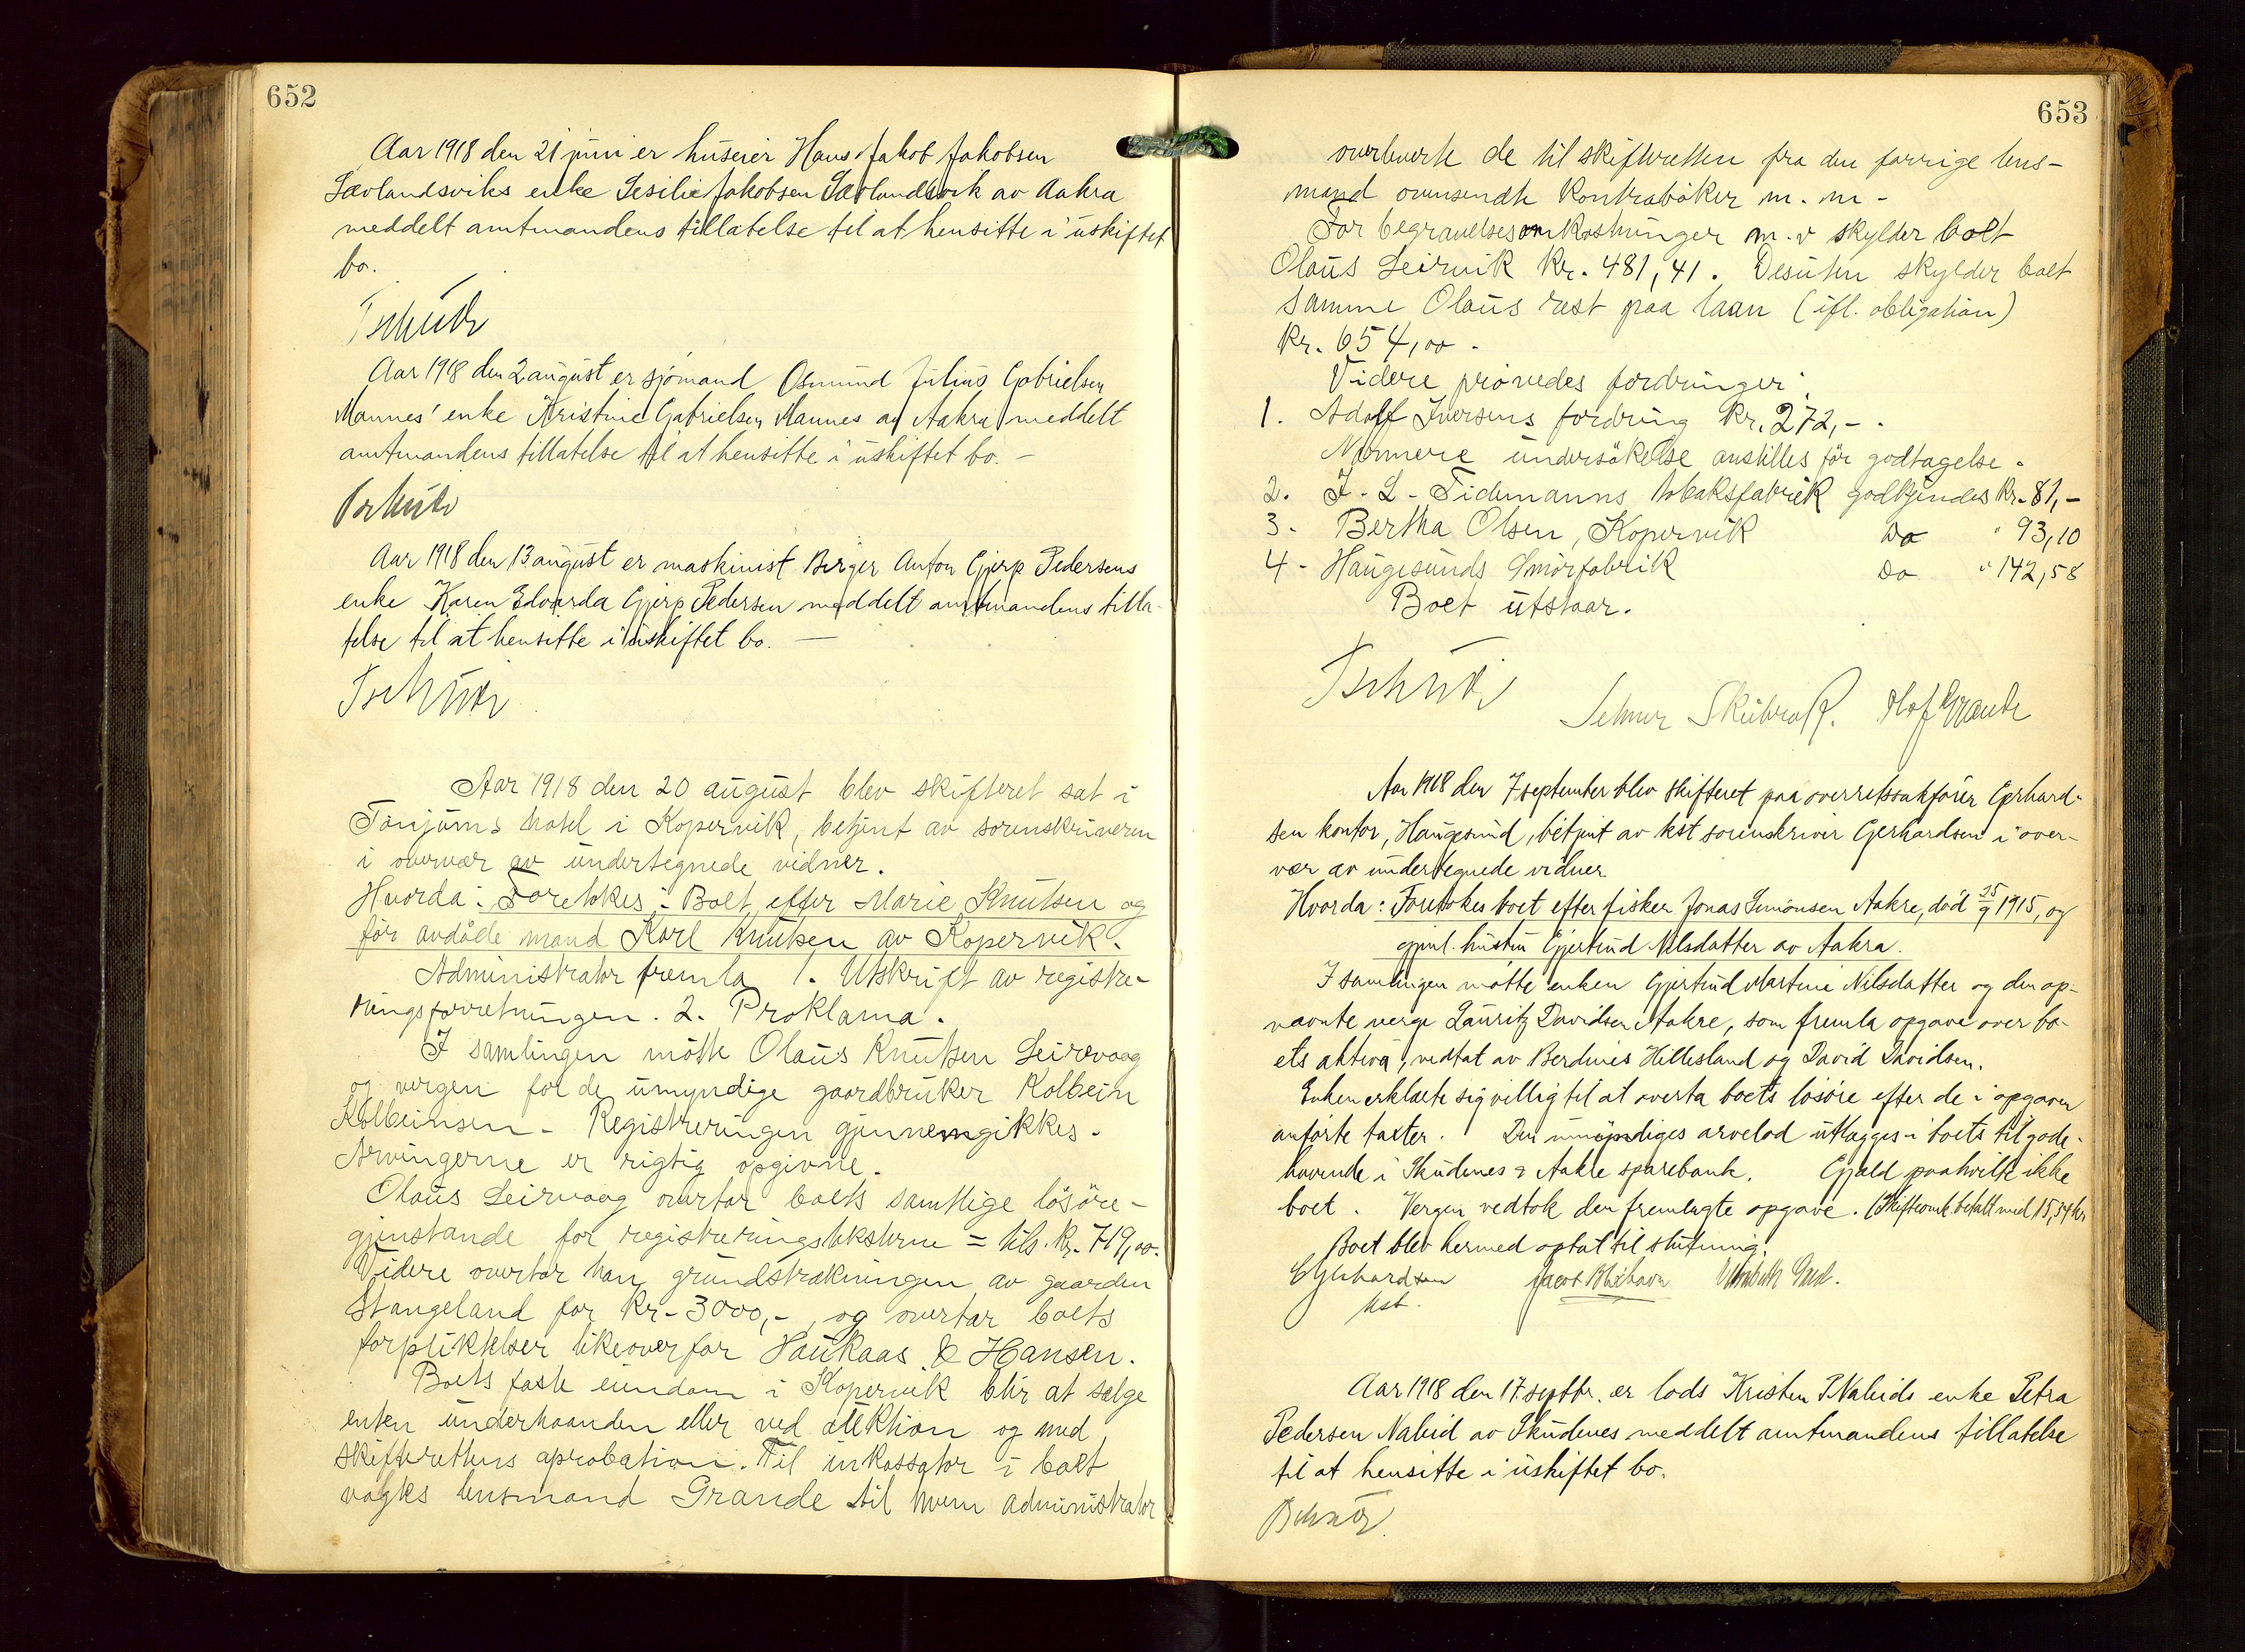 652
Aar 1918 den 21 juni er huseier Hans Jakob Jakobsen
Sævlandsviks enke Sesilie Jakobsen Sævlandsvik av Aakra
meddelt amtmandens tillatelse til at hensitte i uskiftet
bo.
Tschudi
Aar 1918 den 2 august er sjömand Osmund Julius Gabrielsen
Mannes' enke Kristine Gabrielsen Mannes av Aakra meddelt
amtmandens tillatelse til at hensitte i uskiftet bo. –
Tschudi
Aar 1918 den 13 august er maskinist Berger Anton Gjerp Pedersens
enke Karen Edvarda Gjerp Pedersen meddelt amtmandens tilla-
telse til at hensitte i uskiftet bo. —
Tschudi
Aar 1918 den 20 august blev skifteret sat i
Tonjums hotel i Kopervik, betjent av sorenskriveren
i overvær av undertegnede vidner.
Hvorda: Foretokes: Boet efter Marie Knutsen og
för avdöde mand Karl Knutsen av Kopervik.
Administrator fremla 1. Utskrift av registre-
ringsforretningen. 2. Proklama.
I samlingen mötte Olaus Knutsen Leirvaag
og vergen for de umyndige gaardbruker Kolbein
Kolbeinsen – Registreringen gjennemgikkes.
Arvingerne er rigtig opgivne.
Olaus Leirvaag overtar boets samtlige lösöre-
gjenstande for registreringstaksterne = tils. kr. 719,00.
Videre overtar han grundstrækningen av gaarden
Stangeland for kr. 3000,- , og overtar boets
forpliktelser likeoverfor Haukaas & Hansen.
Boets faste eiendom i Kopervik blir at sælge
enten underhaanden eller ved auktion og med
skifterettens aprobation. Til inkassator i boet
valgtes lensmand Grande til hvem administrator
653
overleverte de til skifteretten fra den forrige lens-
mand oversendte kontraböker m. m –
For begravelsesomkostninger m.v skylder boet
Olaus Leirvik kr. 481,41. Desuten skylder boet
samme Olaus rest paa laan (ifl. obligation)
kr. 654,00 .
Videre prövedes fordringer:
1. Adolf Iversens fordring kr. 272,- .
Nærmere undersökelse anstilles för godtagelse.
2. J. L – Tidemanns tobaksfabrik godkjendes kr. 81,-
3 - Bertha Olsen, Kopervik Do " 93,10
4 - Haugesunds Smörfabrik Do " 142,58
Boet utstaar.
Tschudi
Olaf Grande
Aar 1918 den 7 september blev skifteret paa overretssakförer Gerhard-
sen kontor, Haugesund, betjent av kst sorenskriver Gerhardsen i over-
vær av undertegnede vidner
Hvorda: Foretokes boet efter fisker Jonas Simonsen Aakre, död 25/9 1915, og
gjenl. hustru Gjertrud Nilsdatter av Aakra.
I samlingen mötte enken Gjertrud Martine Nilsdatter og den op-
nævnte verge Lauritz Davidsen Aakre, som fremla opgave over bo-
ets aktiva, vedtat av Berdines Hillesland og David Davidsen.
Enken erklærte sig villig til at overta boets lösöre efter de i opgaven
anförte takster. Den umyndiges arvelod utlægges i boets tilgode-
havende i Skudenes & Aakre sparebank. Gjæld paahvilte ikke
boet. Vergen vedtok den fremlagte opgave. (Skifteomk. betalt med 15,54 kr
Boet blev hermed optat til slutning.
EGerhardsen
kst.
Aar 1918 den 17 septbr. er lods Kristen P. Naleids enke Petra
Pedersen Naleid av Skudenes meddelt amtmandens tillatelse
til at hensitte i uskiftet bo.
Tschudi